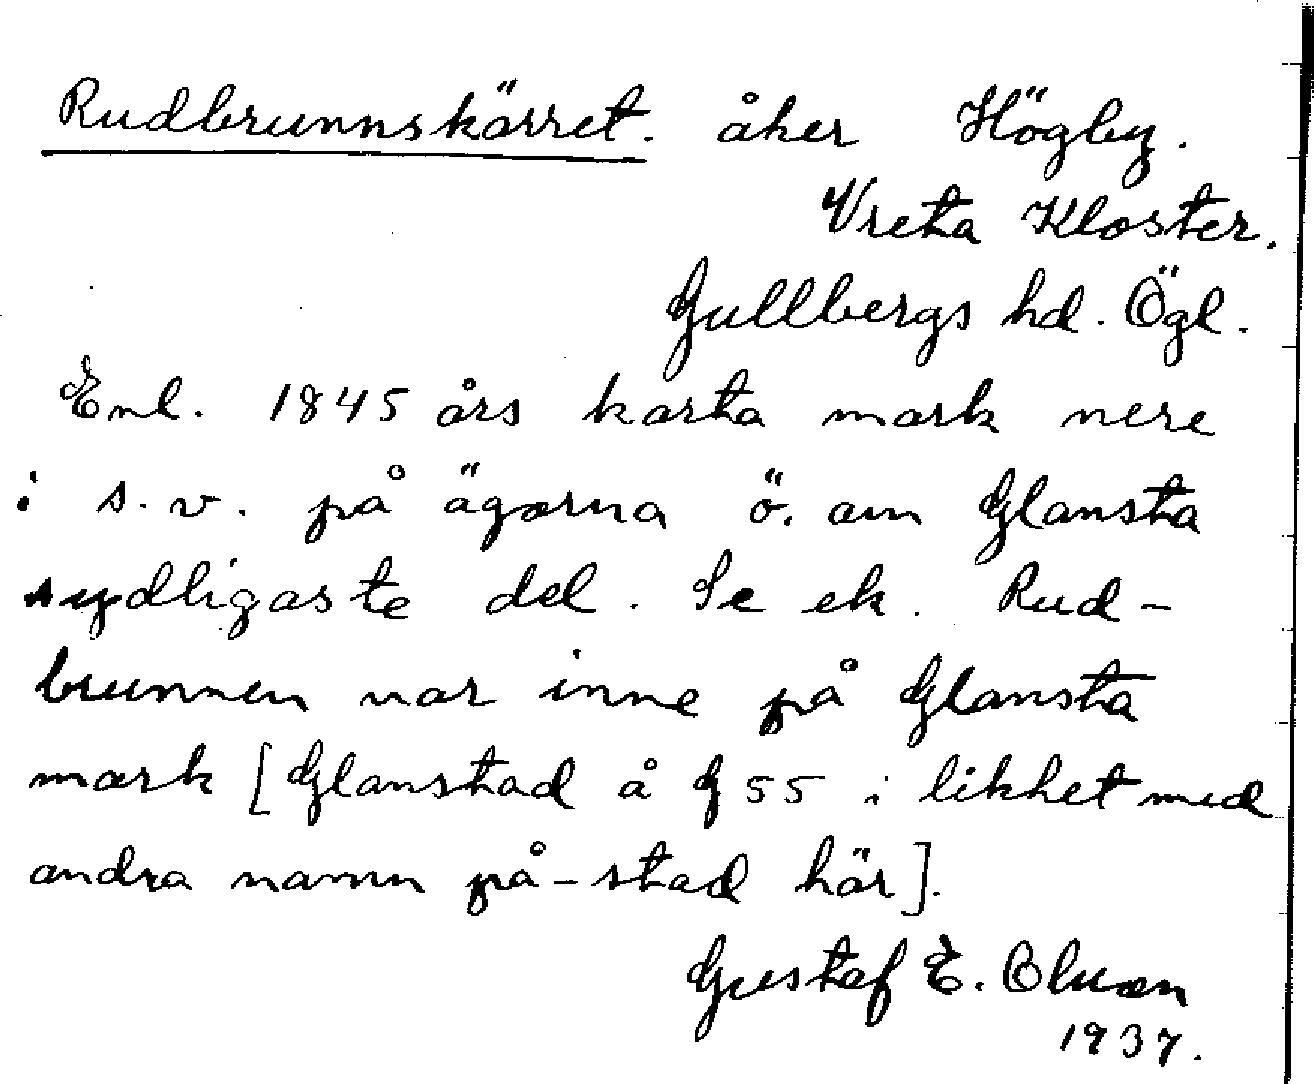 Rudbrunnskärret. åker Högby.
Vreta Kloster.
Gullbergs hd. Ögl.
Enl. 1845 års karta mark nere
i s.v. på ägorna ö. om Glansta
sydligaste del. Se ek. Rud-
brunnen var inne på Glansta
mark [Glanstad å G 55 i likhet med
andra namn på -stad här].
Gustaf E. Olsson
1937.